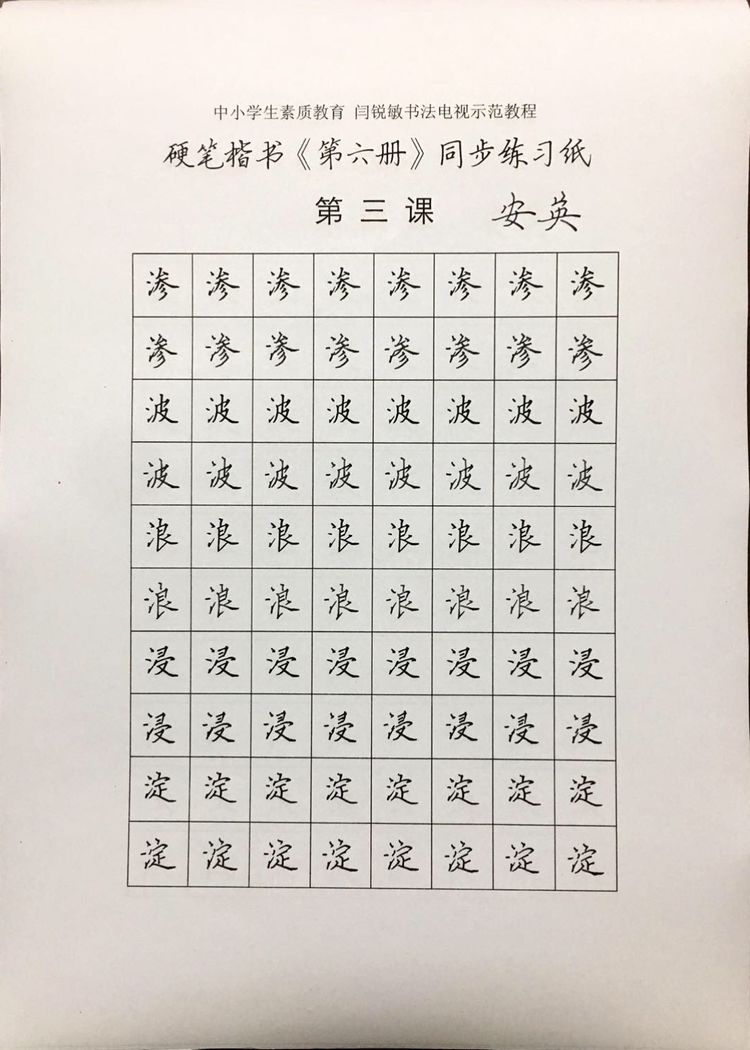 中小学生素质教育 闫锐敏书法电视示范教程
硬笔楷书《第六册》同步练习纸
第三课 安英
渗渗渗渗渗渗渗渗
渗渗渗渗渗渗渗渗
波波波波波波波波
波波波波波波波波
浪浪浪浪浪浪浪浪
浪浪浪浪浪浪浪浪
浸浸浸浸浸浸浸浸
浸浸浸浸浸浸浸浸
淀淀淀淀淀淀淀淀
淀淀淀淀淀淀淀淀